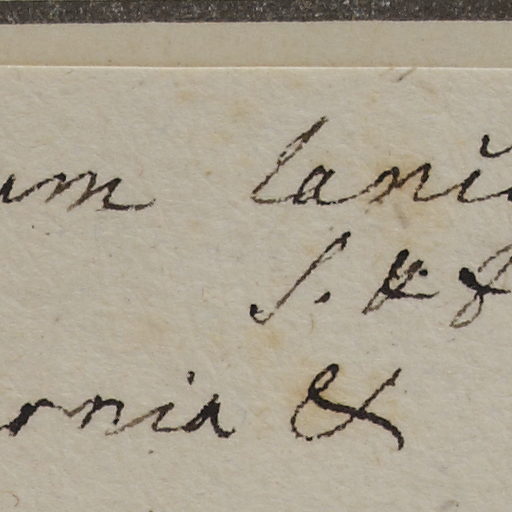 um lani
S. &
ornia &